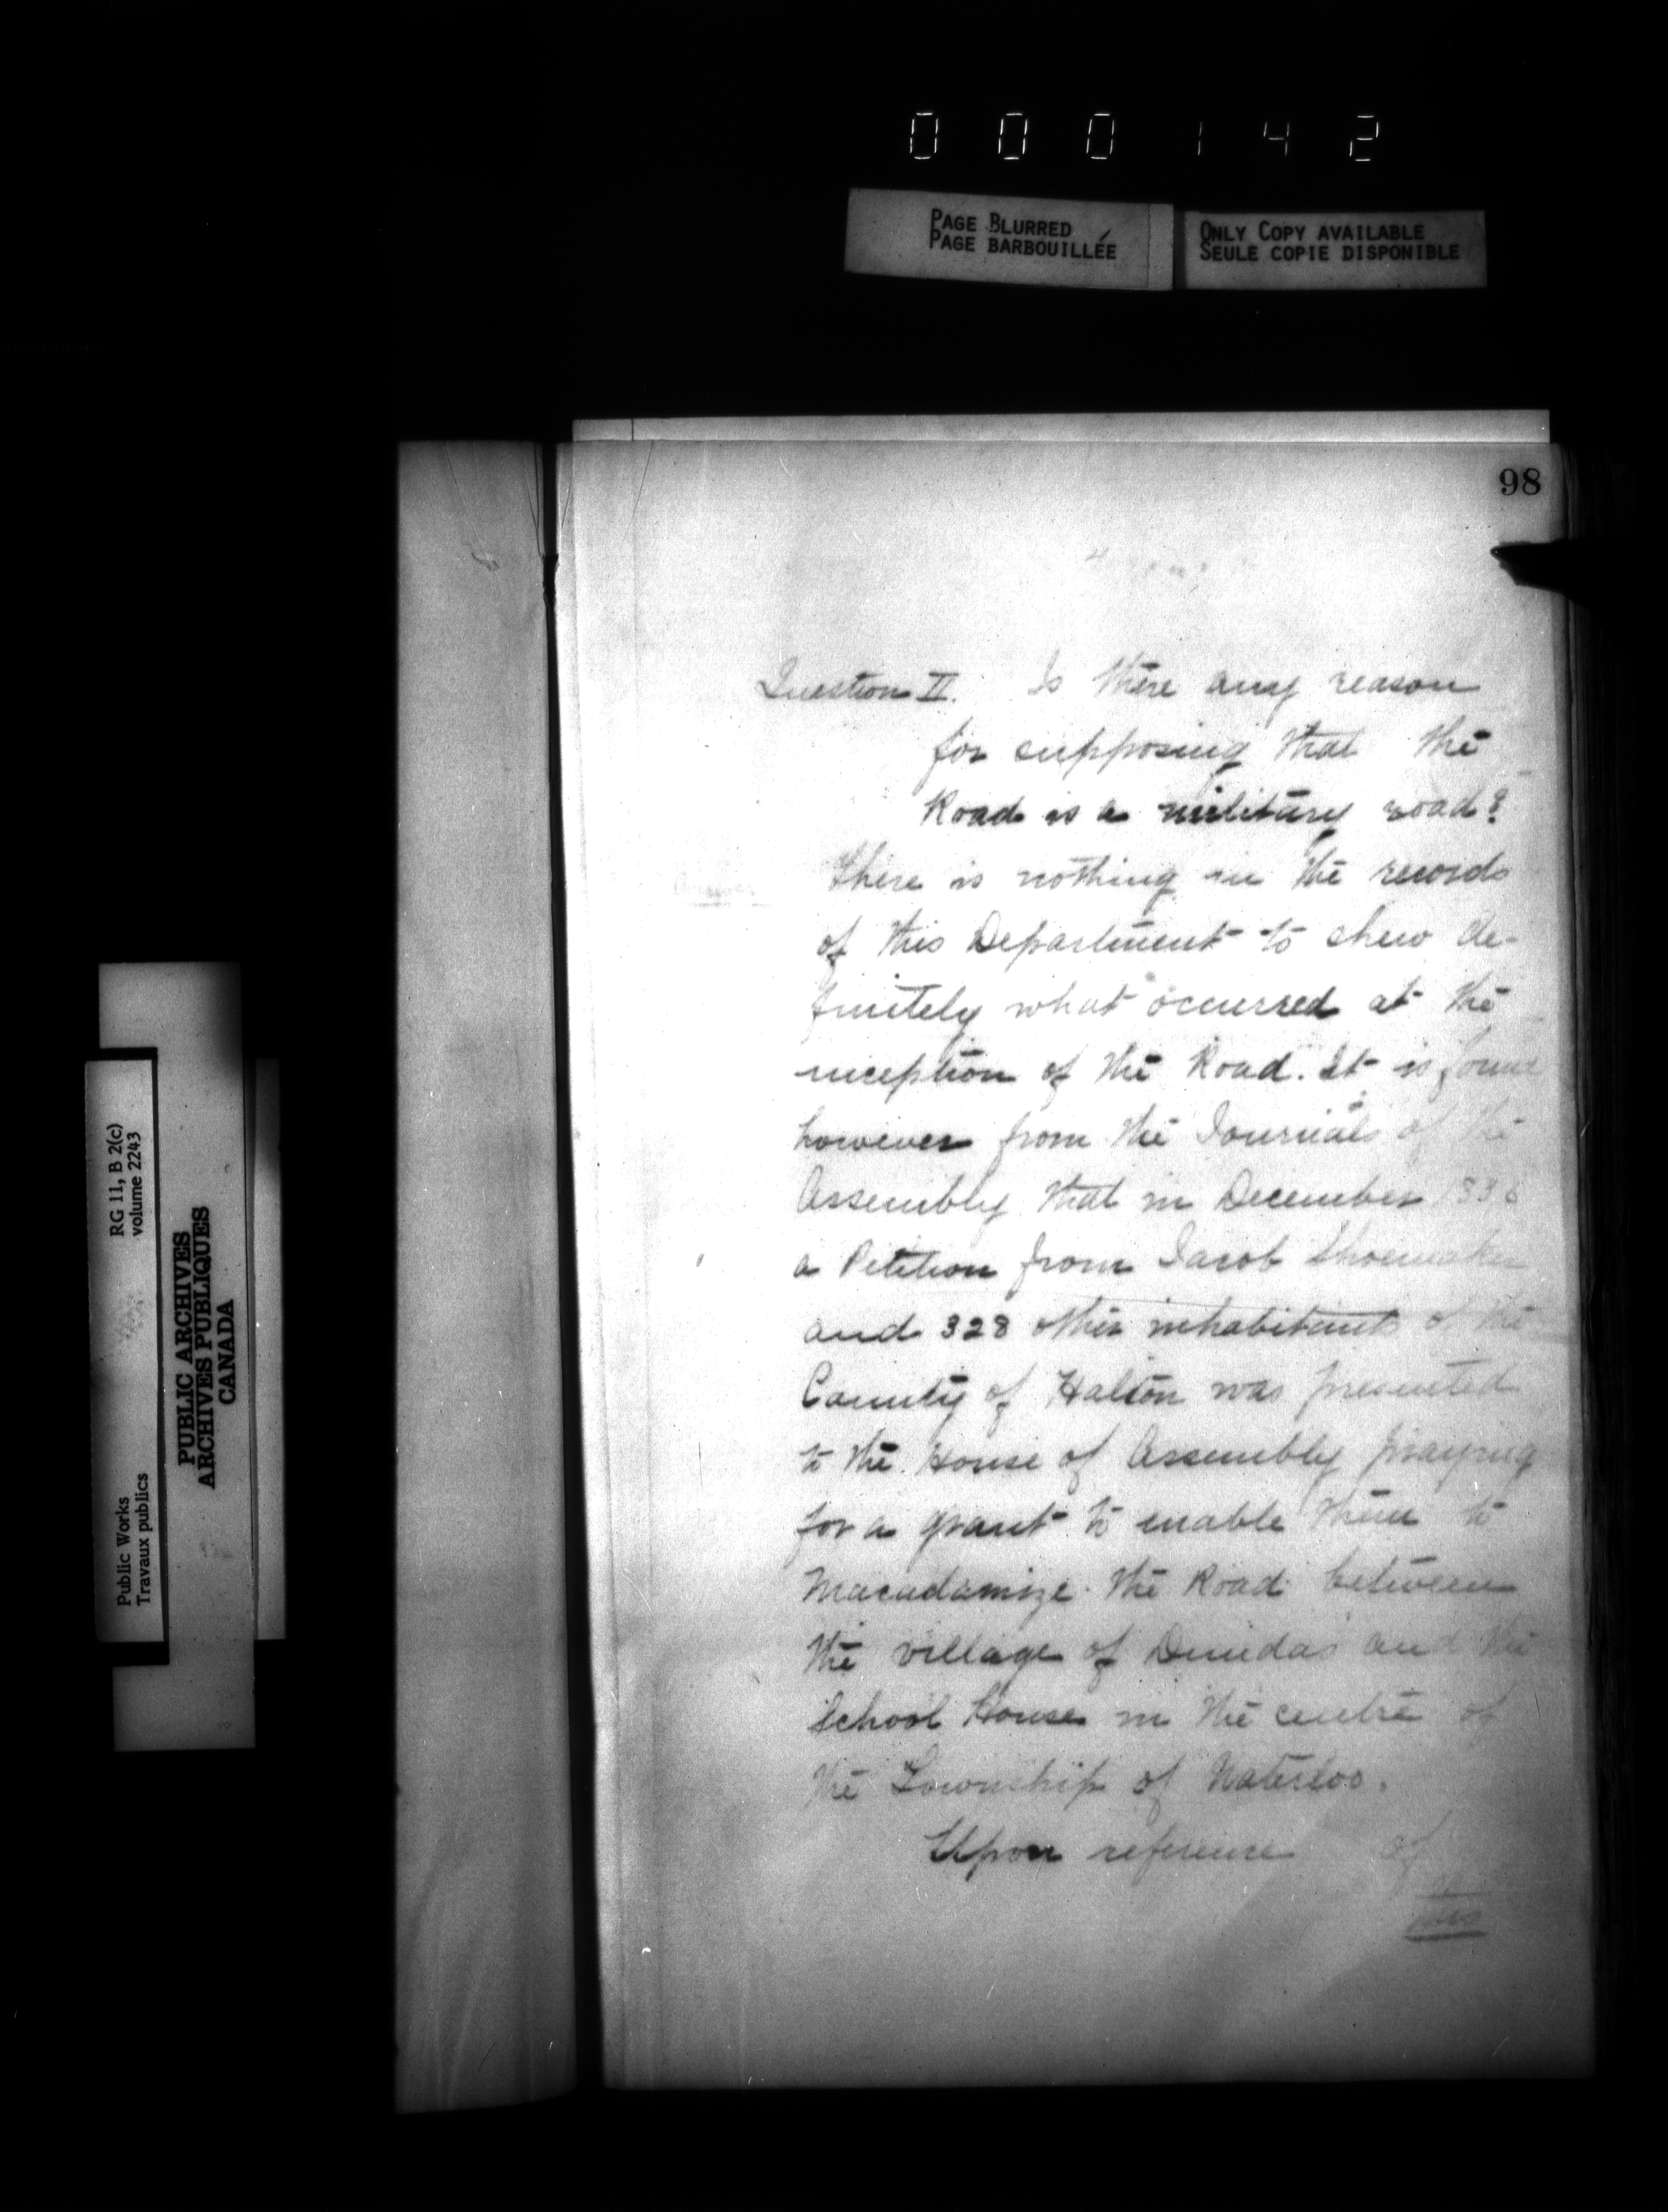 000142
PAGE BLURRED
PAGE BARBOUILLÉE
ONLY COPY AVAILABLE
SEULE COPIE DISPONIBLE
98
Question II. Is there any reason
for supposing that the
Road is a military road?
Answer There is nothing in the records
of this Department to shew de-
finitely what occurred at the
inception of the Road. It is found
however from the Journals of the
Assembly that in December 1836
a Petition from Jacob Shoemaker
and 328 other inhabitants of the
County of Halton was presented
to the House of Assembly praying
for a grant to enable them to
Macadamize the Road between
the village of Dundas and the
School House in the centre of
the Township of Waterloo.
Upon reference of
RG 11, B 2(c)
volume 2243
Public Works
Travaux publics
PUBLIC ARCHIVES
ARCHIVES PUBLIQUES
CANADA